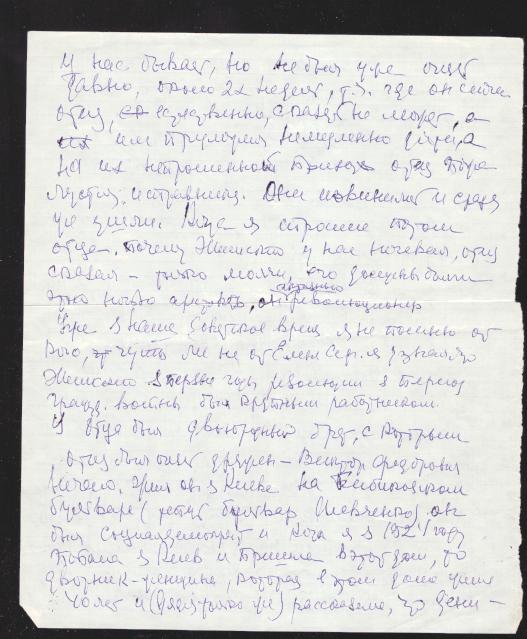 у нас бывает, но не был уже очень
давно, около 2х недель, т.ч. где он сейчас
отец, естественно, сказать не может, а
им немедленно
на их отец
исправника. Они извинились и сразу
же ушли. Когда я спросила потом
отца, почему у нас ночевал, отец
сказал – молчи, его должны были
этой ночью арестовать, он революционер
Уже в наше Советское время я не помню от
кого, чуть ли не от Елены я узнала, что
в первые годы революции в период
гражд. войны был крупным работником.
У отца был двоюродный брат, с которым
отец был очень дружен – Виктор Федорович
жил он в Киеве на Бибиковском
бульваре (теперь бульвар Шевченко) он
был социалдемократ и когда я в 1924 году
попала в Киев и пришла в этот дом, то
дворник-женщина, которая в этом доме жила
40 лет и рассказала, что